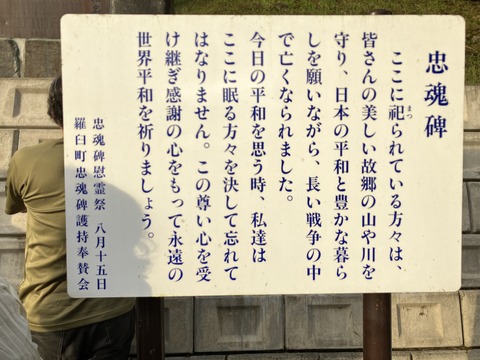 忠魂碑
ここに祀られている方々は、
まつ
皆さんの美しい故郷の山や川を
守り、日本の平和と豊かな暮ら
しを願いながら、長い戦争の中
で亡くなられました。
今日の平和を思う時、私達は
ここに眠る方々を決して忘れて
はなりません。この尊い心を受
け継ぎ感謝の心をもって永遠の
世界平和を祈りましょう。
忠魂碑慰霊祭 八月十五日
羅臼町忠魂碑護持奉賛会